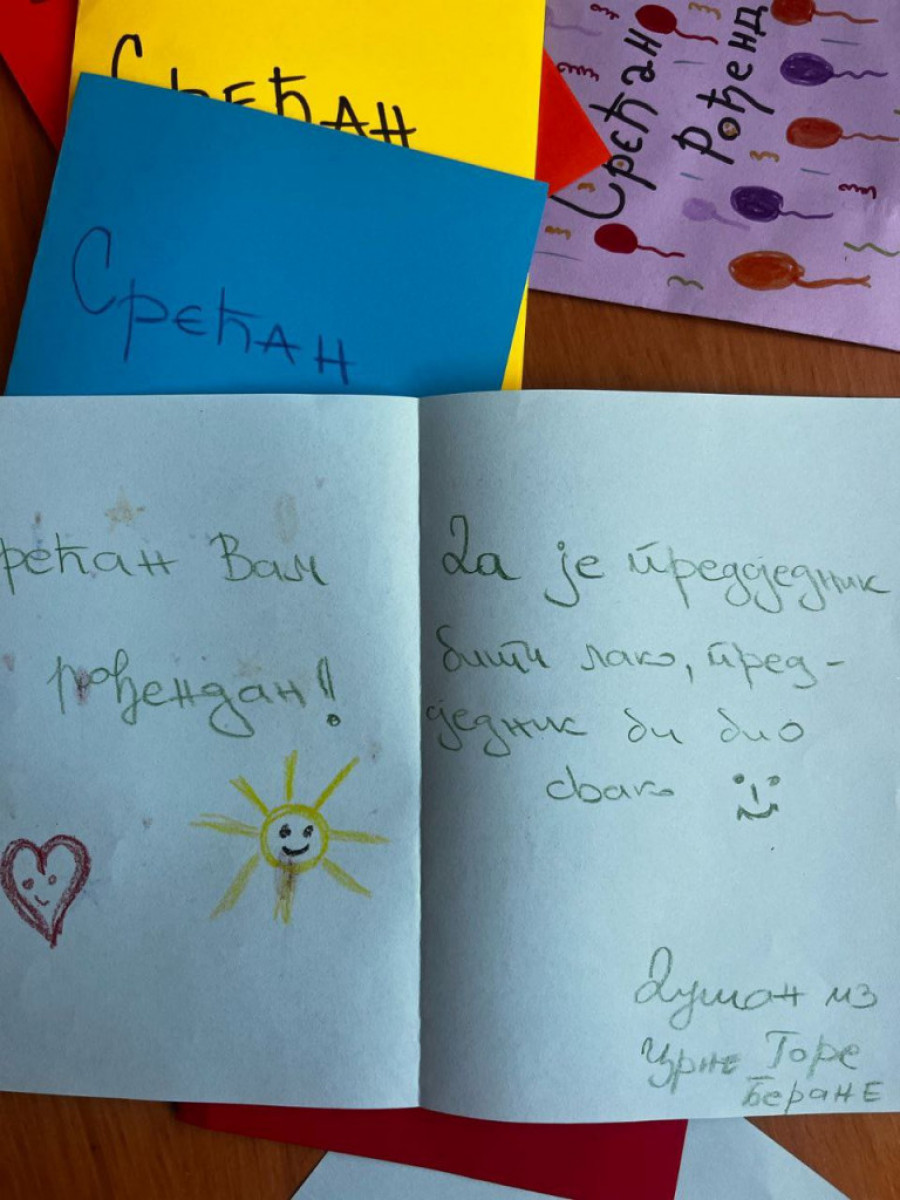 Срећан
Срећан
рођенд
Срећан
рећан Вам
рођендан!
Да је предсједник
бити лако, пред-
сједник би био
свако
Душан из
Црне Горе
Беране